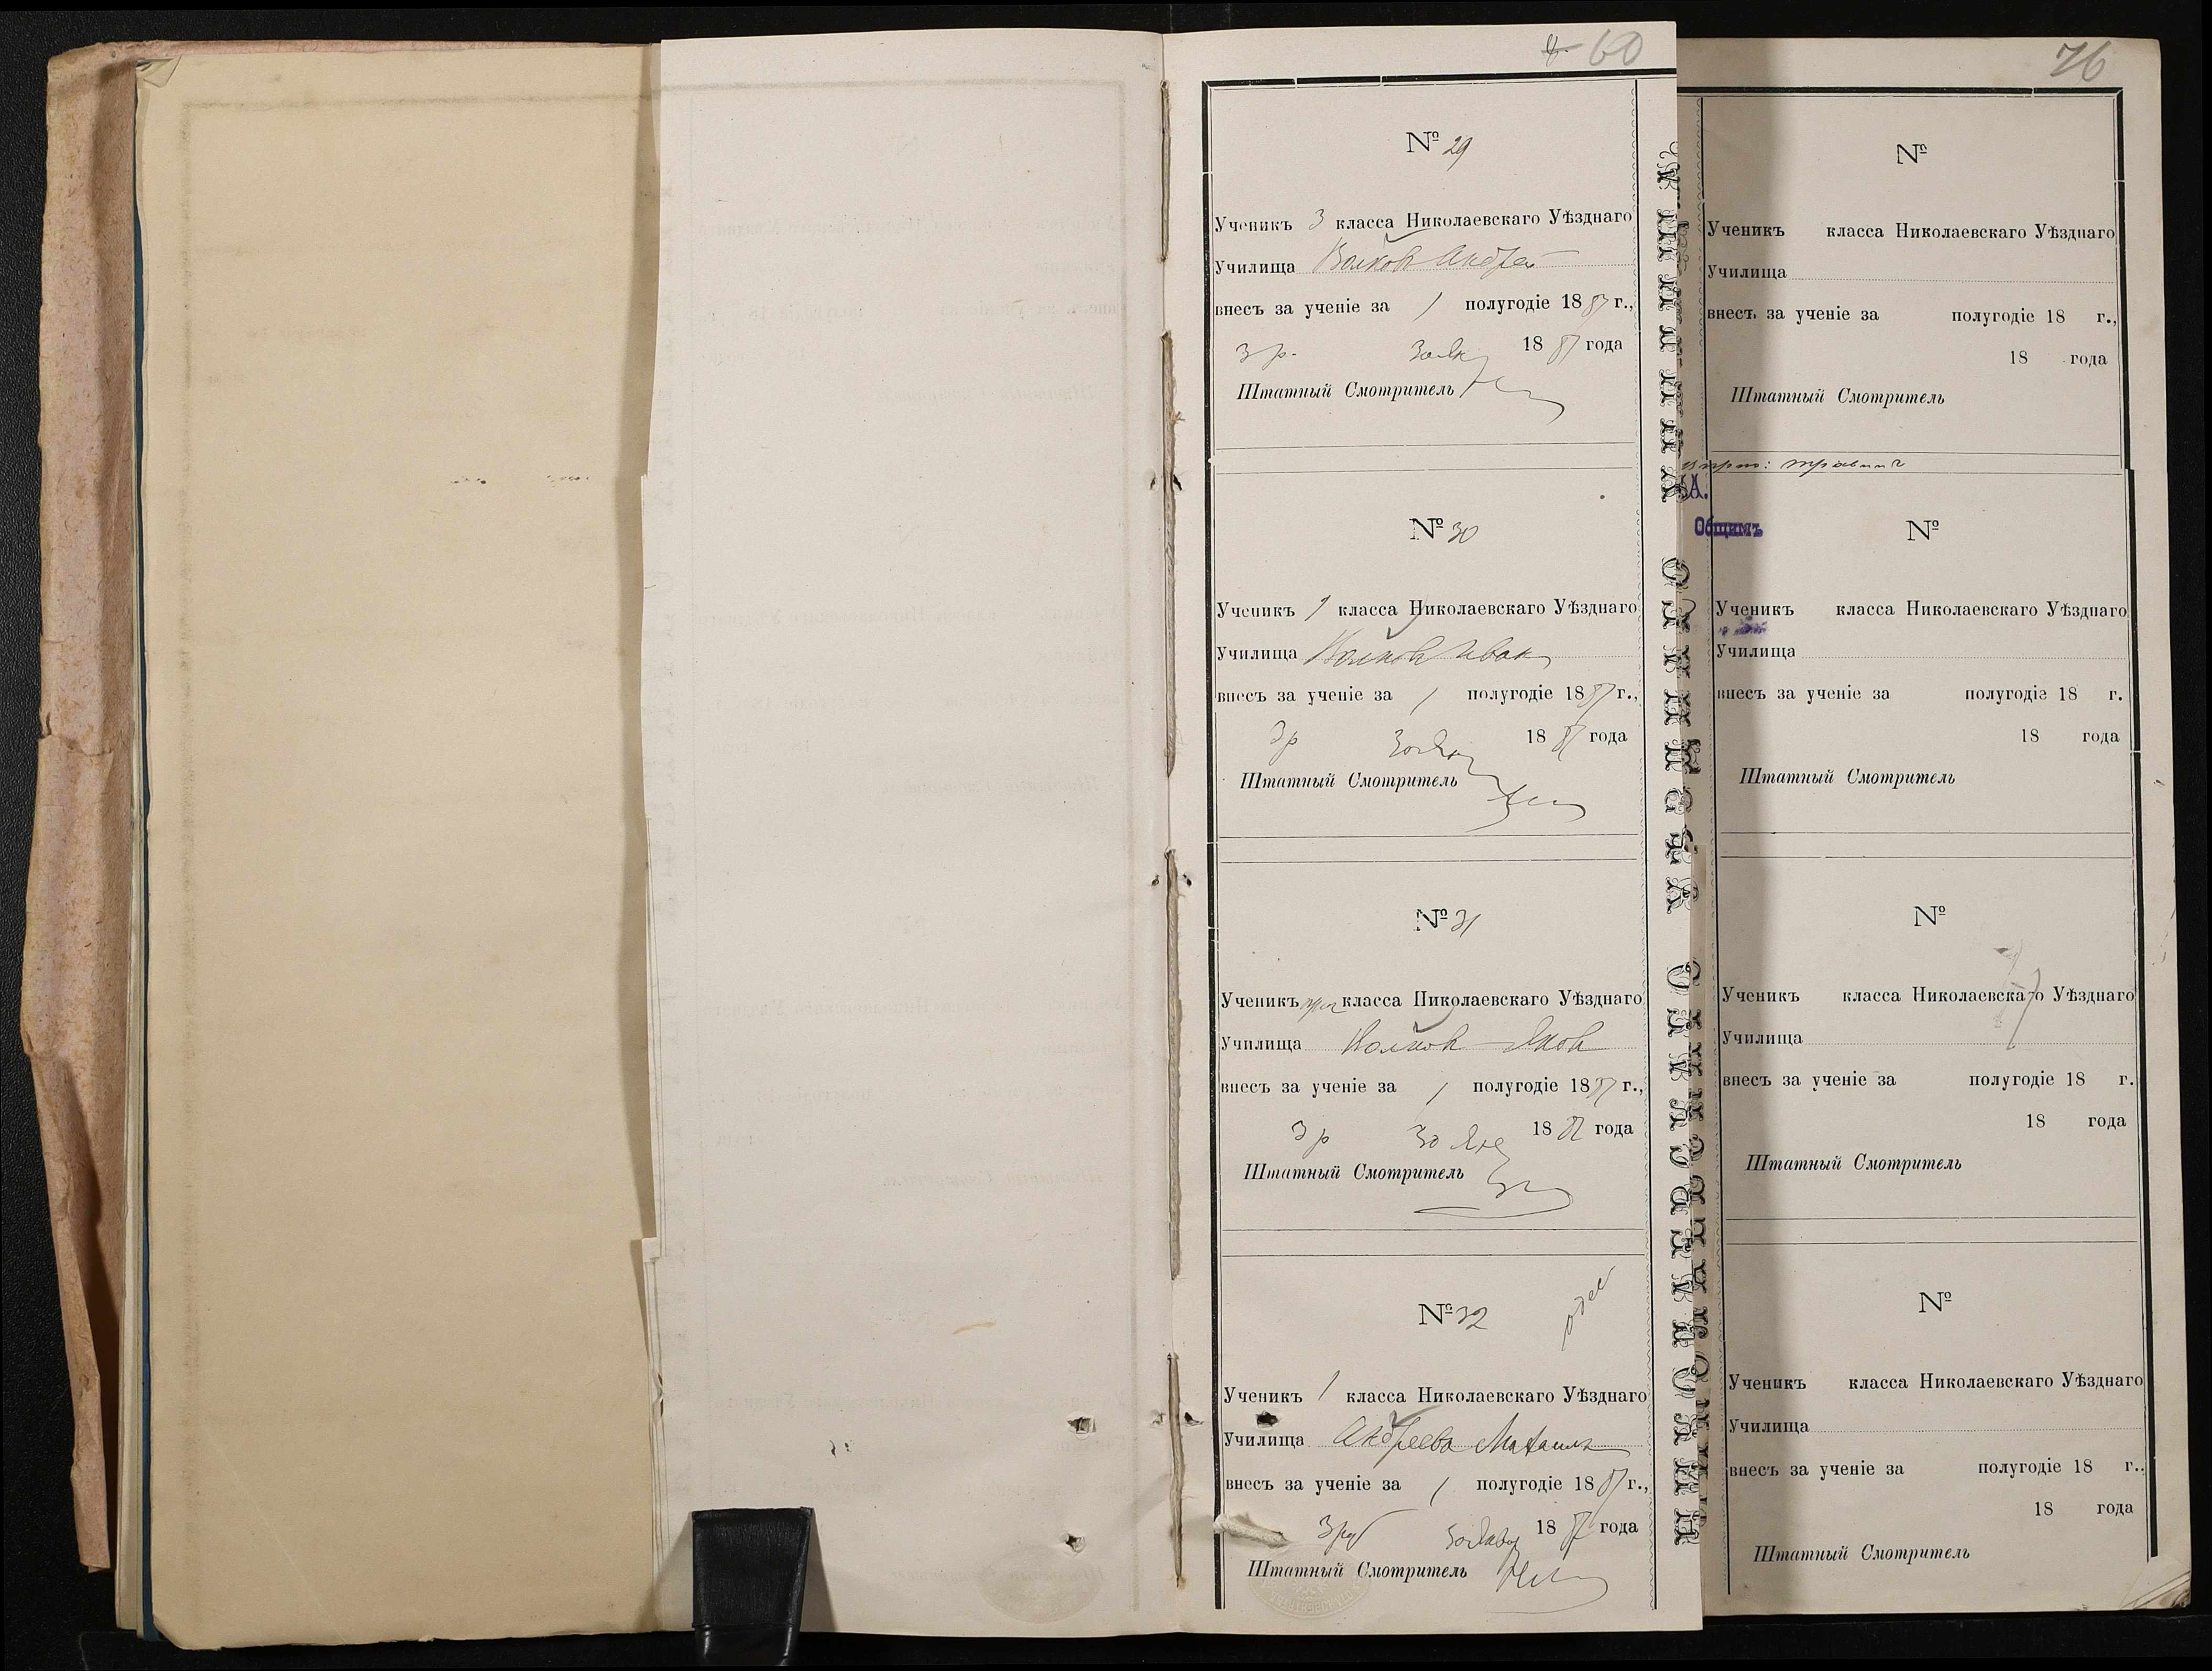 60
№ 29
Ученикъ 3 класса Николаевскаго Уѣзднаго
Училища Волковъ Андрей
внесъ за ученіе за 1 полугодіе 1887 г.,
3 р. 30 Янв 1887 года
Штатный Смотритель
№ 30
Ученикъ 1 класса Николаевскаго Уѣзднаго
Училища Волковъ Иванъ
внесъ за ученіе за 1 полугодіе 1887 г.,
3 р 30 Янв 1887 года
Штатный Смотритель
№ 31
Ученикъ класса Николаевскаго Уѣзднаго
Училища Волковъ Яковъ
внесъ за ученіе за 1 полугодіе 1887 г.,
3 р 30 Янв 1887 года
Штатный Смотритель
№ 32
Ученикъ 1 класса Николаевскаго Уѣзднаго
Училища Андреева
внесъ за ученіе за 1 полугодіе 1887 г.,
3 руб 30 Янв 1887 года
Штатный Смотритель
76
№
Ученикъ класса Николаевскаго Уѣзднаго
Училища
внесъ за ученіе за полугодіе 18 г.,
18 года
Штатный Смотритель
Общимъ
№
Ученикъ класса Николаевскаго Уѣзднаго
Училища
внесъ за ученіе за полугодіе 18 г.
18 года
Штатный Смотритель
№
Ученикъ класса Николаевскаго Уѣзднаго
Училища
внесъ за ученіе за полугодіе 18 г.
18 года
Штатный Смотритель
№
Ученикъ класса Николаевскаго Уѣзднаго
Училища
внесъ за ученіе за полугодіе 18 г..
18 года
Штатный Смотритель